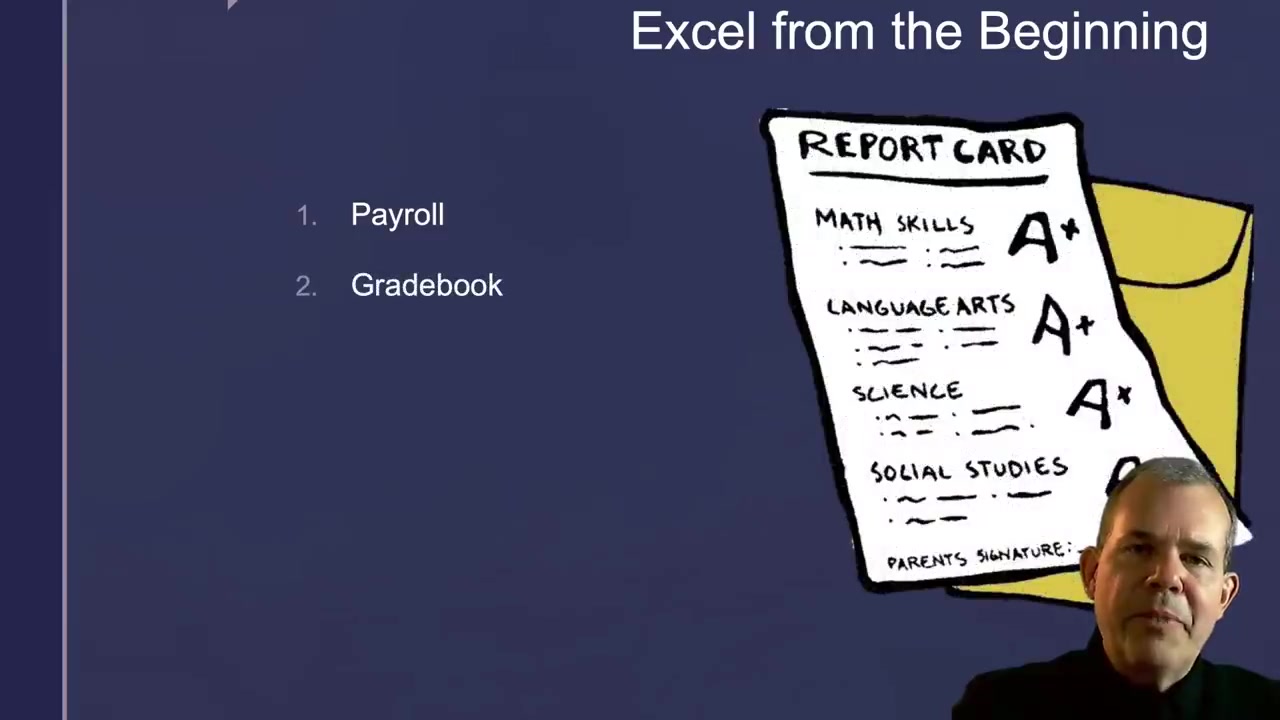 Excel from the Beginning
1. Payroll
2. Gradebook
REPORT CARD
MATH SKILLS A+
LANGUAGE ARTS A+
SCIENCE A+
SOCIAL STUDIES
PARENTS SIGNATURE: